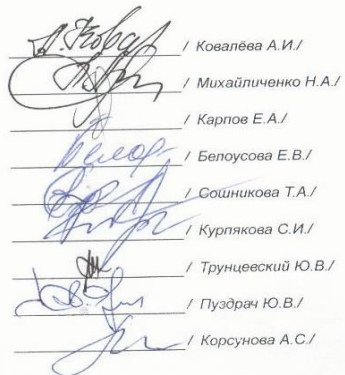 / Ковалёва А.И./
/ Михайличенко Н.А./
/ Карпов Е.А./
/ Белоусова Е.В./
/ Сошникова Т.А./
/ Курпякова С.И./
/ Трунцевский Ю.В./
/ Пуздрач Ю.В./
/ Корсунова А.С./